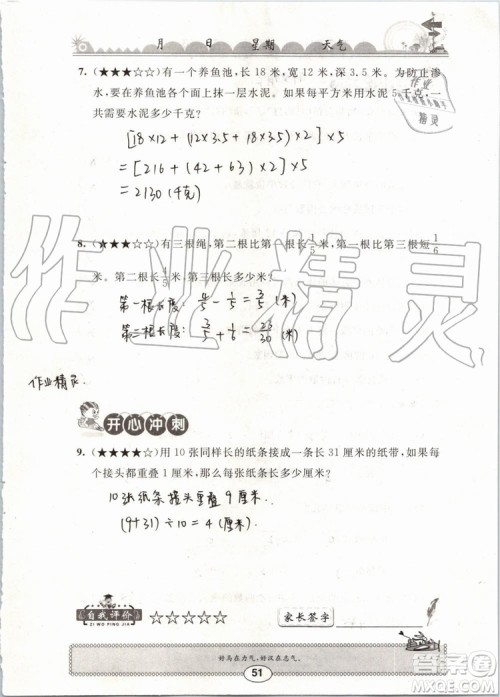 月 日 星期 天气
7.(★★★☆☆)有一个养鱼池,长 18 米,宽 12 米,深 3.5 米。为防止渗
水,要在养鱼池的各个面上抹一层水泥。如果每平方米用水泥 5 千克,一
共需要水泥多少千克?
[18×12+(12×3.5+18×3.5)×2]×5
=[216+(42+63)×2]×5
=2130(千克)
8.(★★★☆☆)有三根绳,第二根比第一根长 1/5 米,第三根比第一根短 1/6
米。第二根长 4/5 米,第三根长多少米?
第一根长度:4/5-1/5=3/5(米)
第三根长度:3/5+1/6=23/30(米)
作业精灵.
开心冲刺
9.(★★★★☆)用 10 张同样长的纸条接成一条长 31 厘米的纸带,如果每
个接头都重叠 1 厘米,那么每张纸条长多少厘米?
10张纸条接头重叠 9厘米.
(9+31)÷10=4(厘米)
自我评价
ZI WO PING JIA
☆☆☆☆☆
家长签字
好马在力气,好汉在志气。
51
作业精灵
答案圈
MXQE.COM